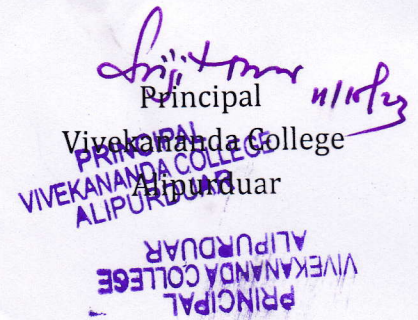 Principal
Vivekananda College
Alipurduar
PRINCIPAL
VIVEKANANDA COLLEGE
ALIPURDUAR
PRINCIPAL
VIVEKANANDA COLLEGE
ALIPURDUAR